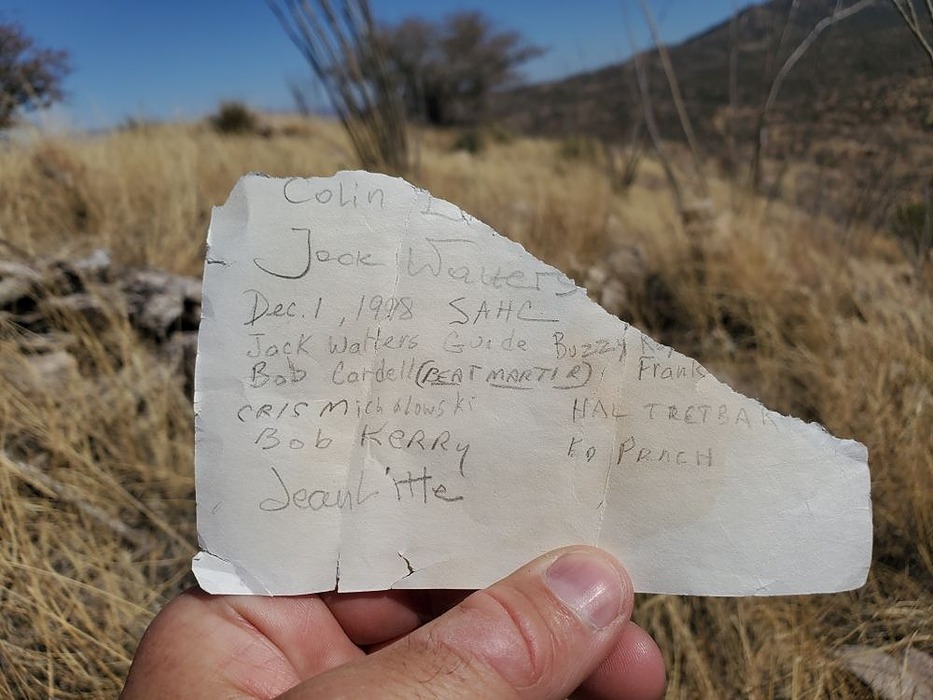 Colin
Jack Watters
Dec. 1, 1998 SAHC
Jack Watters Guide Buzzy
Bob Cardell (BEAT MARTIR), Frank
CRIS Michalowski HAL TRETBAR
Bob KERRY ED PRACH
Jean